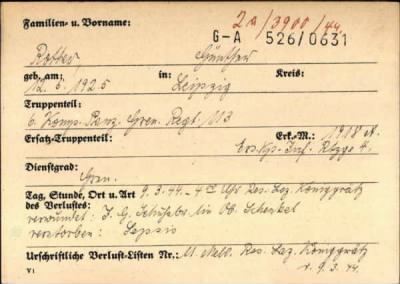 2a/3900/44
Familien- u. Vorname: G-A 526/0631
Rotter Günther
geb. am: in: Kreis:
12.5.1925 Leipzig
Truppenteil:
6. Komp. Panz. Gren. Regt. 113
Ersatz-Truppenteil: Erk.-M.: 1918
Ers. Kp. Inf.
Dienstgrad:
Gren.
Tag, Stunde, Ort u. Art 9.3.44 - 4 Uhr Res. Laz. Königgrätz
des Verlustes:
verwundet: I. G. Schuss Ob. Schenkel
verstorben: Sepsis
Urschriftliche Verlust-Listen Nr.: Res. Laz. Königgrätz
V1 v. 9.3.44.